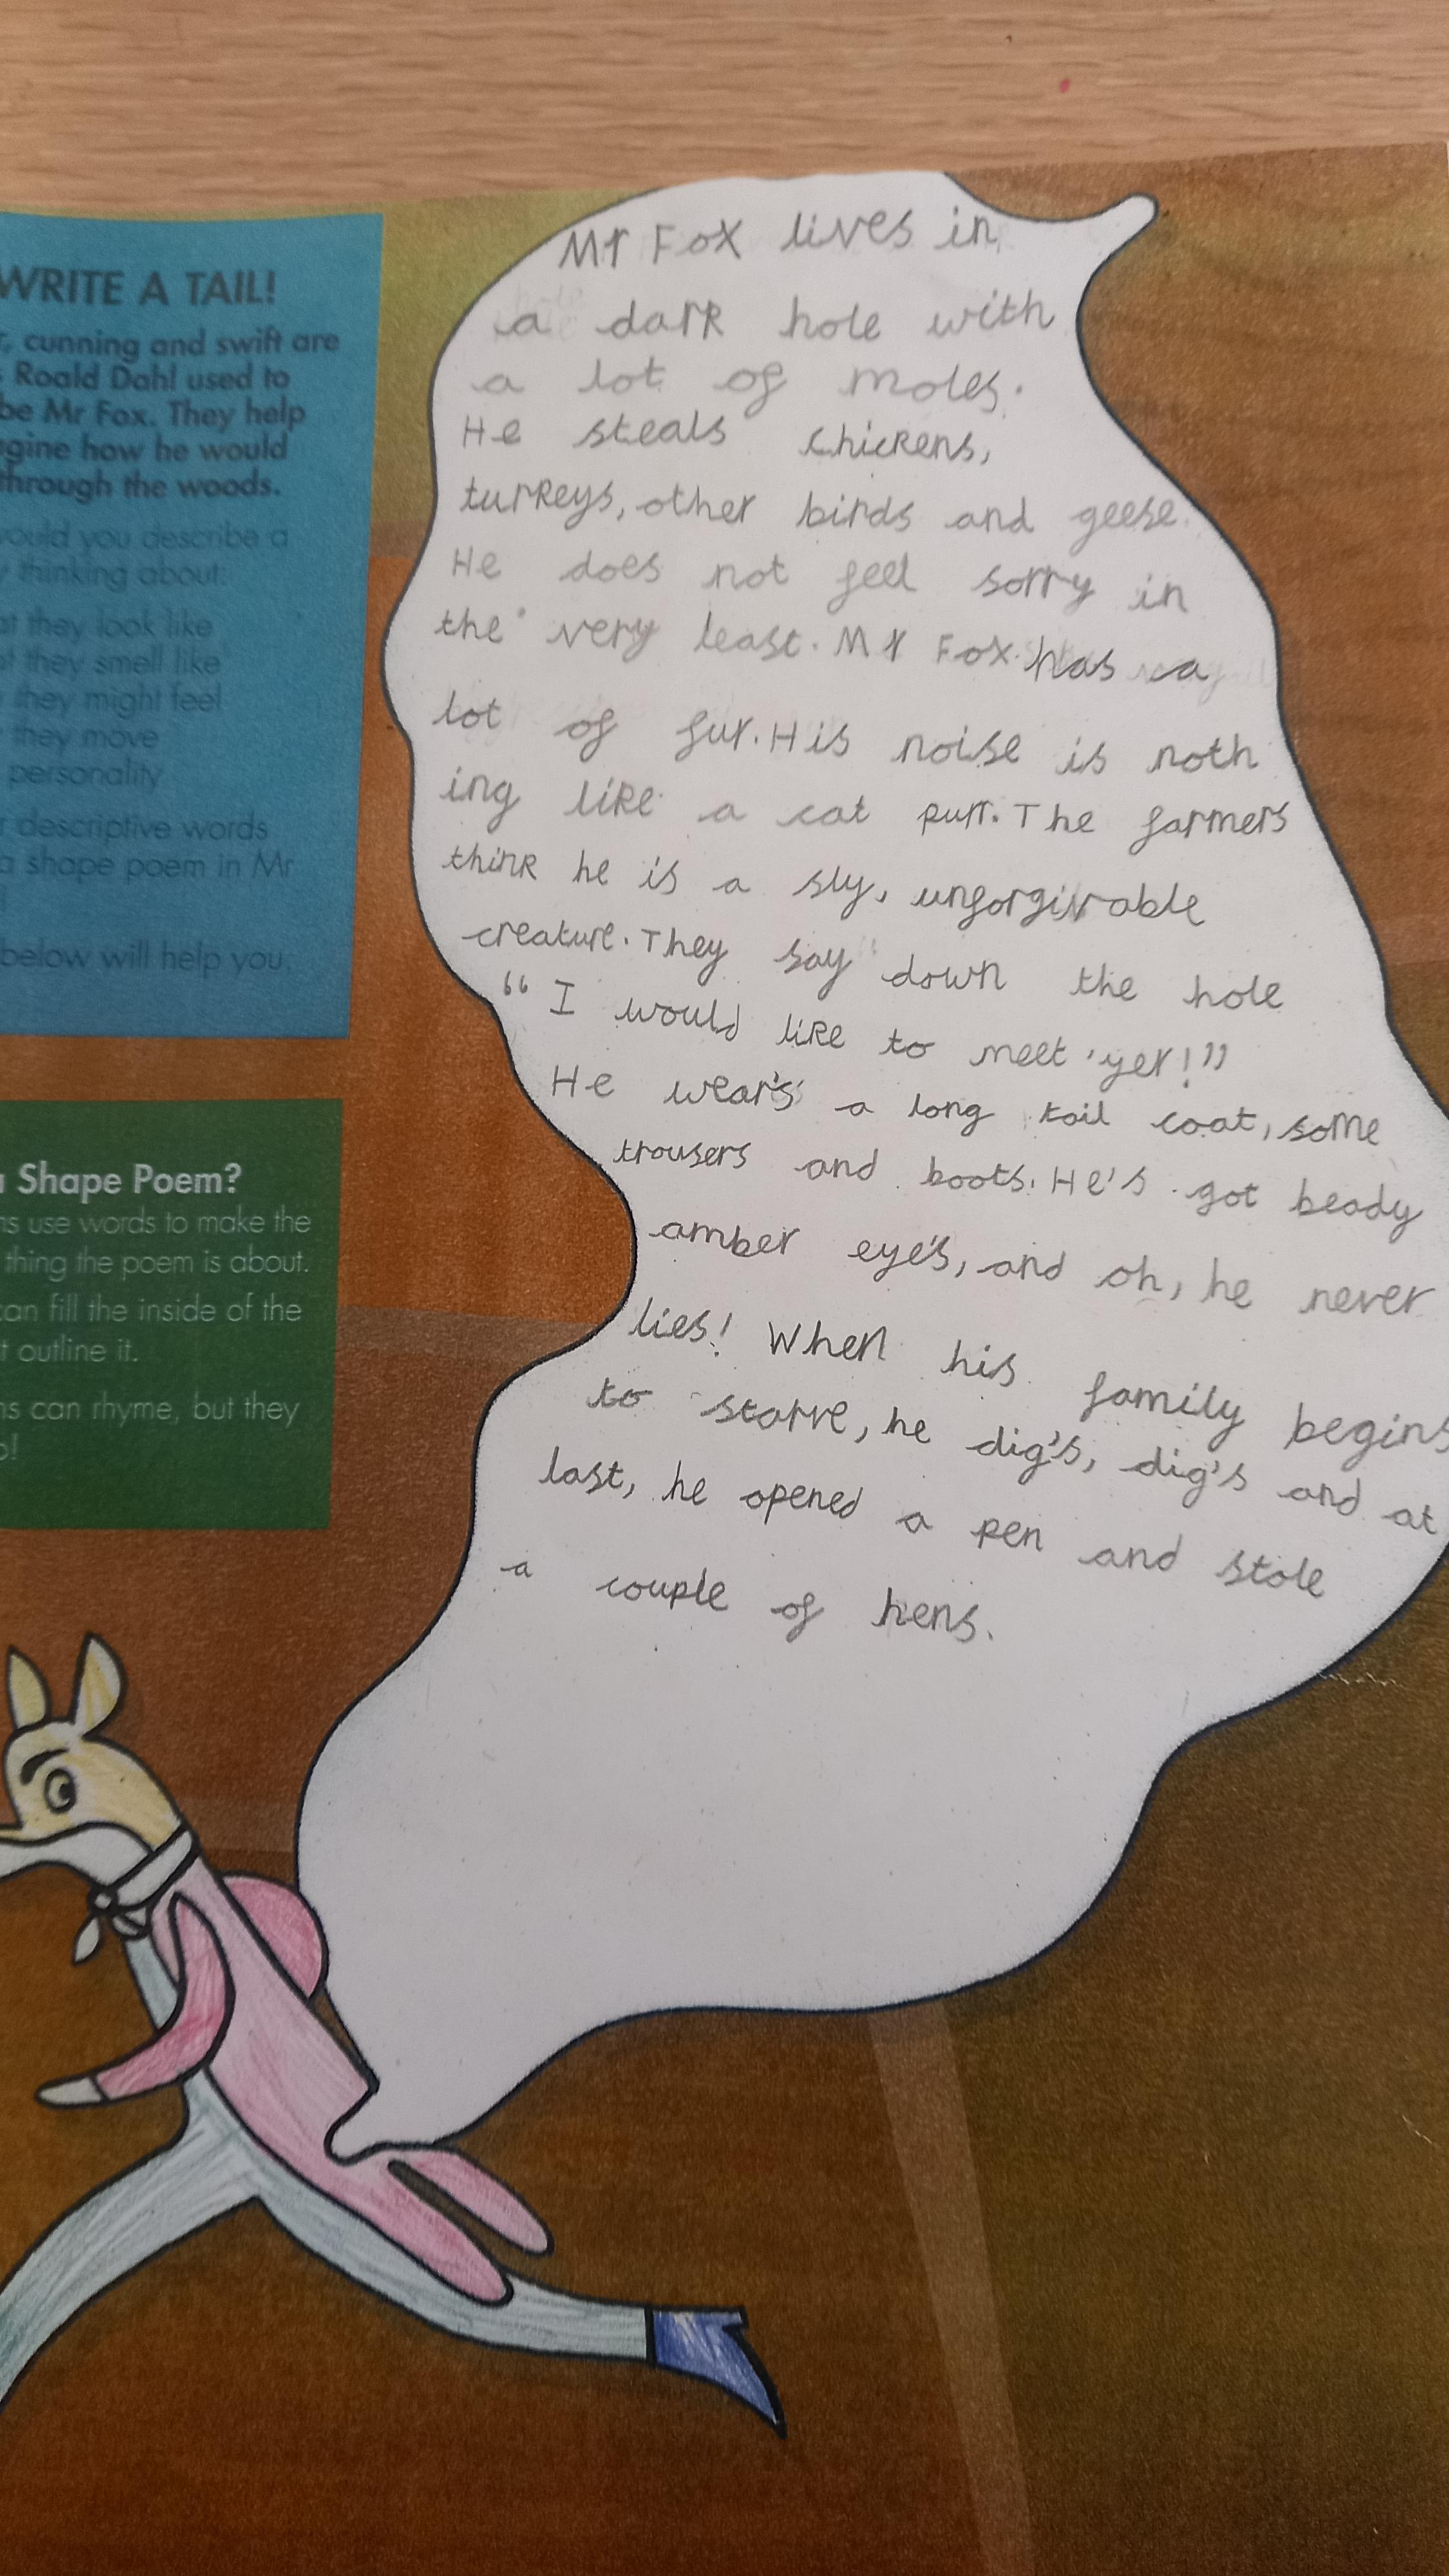 WRITE A TAIL!
cunning and swift are
Roald Dahl used to
be Mr Fox. They help
gine how he would
through the woods.
ould you describe a
thinking about:
at they look like
t they smell like
they might feel
they move
personality
descriptive words
a shape poem in Mr
below will help you
Shape Poem?
ns use words to make the
thing the poem is about.
can fill the inside of the
t outline it.
ns can rhyme, but they
o!
Mr Fox lives in
a dark hole with
a lot of moles.
He steals chickens,
turkeys, other birds and geese.
He does not feel sorry in
the very least. Mr Fox has a
lot of fur. His noise is noth
ing like a cat purr. The farmers
think he is a sly, unforgivable
creature. They say down the hole
"I would like to meet 'yer!"
He wear's a long tail coat, some
trousers and boots. He's got beady
amber eye's, and oh, he never
lies! When his family begins
to starve, he dig's, dig's and at
last, he opened a pen and stole
a couple of hens.